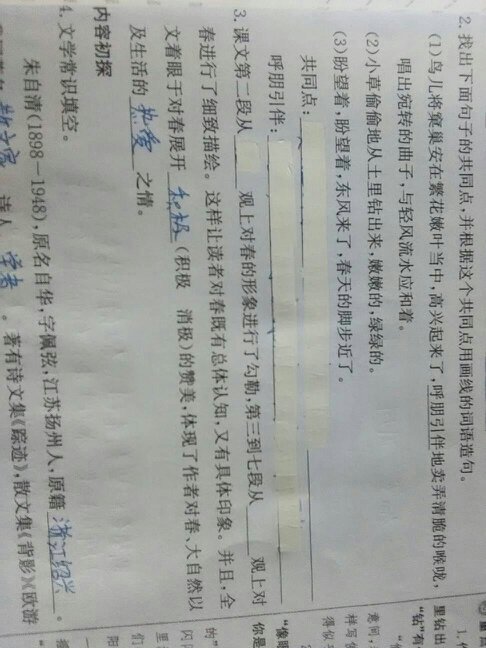 2. 找出下面句子的共同点,并根据这个共同点用画线的词语造句。
(1)鸟儿将窠巢安在繁花嫩叶当中,高兴起来了,呼朋引伴地卖弄清脆的喉咙,
唱出宛转的曲子,与轻风流水应和着。
(2)小草偷偷地从土里钻出来,嫩嫩的,绿绿的。
(3)盼望着,盼望着,东风来了,春天的脚步近了。
共同点:
呼朋引伴:
3. 课文第二段从 观上对春的形象进行了勾勒,第三到七段从 观上对
春进行了细致描绘。这样让读者对春既有总体认知,又有具体印象。并且,全
文着眼于对春展开 积极 (积极 消极)的赞美,体现了作者对春、大自然以
及生活的 热爱 之情。
内容初探
4. 文学常识填空。
朱自清(1898—1948),原名自华,字佩弦,江苏扬州人,原籍 浙江绍兴 。
散文家 诗人 学者 。著有诗文集《踪迹》,散文集《背影》《欧游
1.
里钻出
“钻”有
意间,
样写
得似
“像
你是
的”
闪
里
们
阳